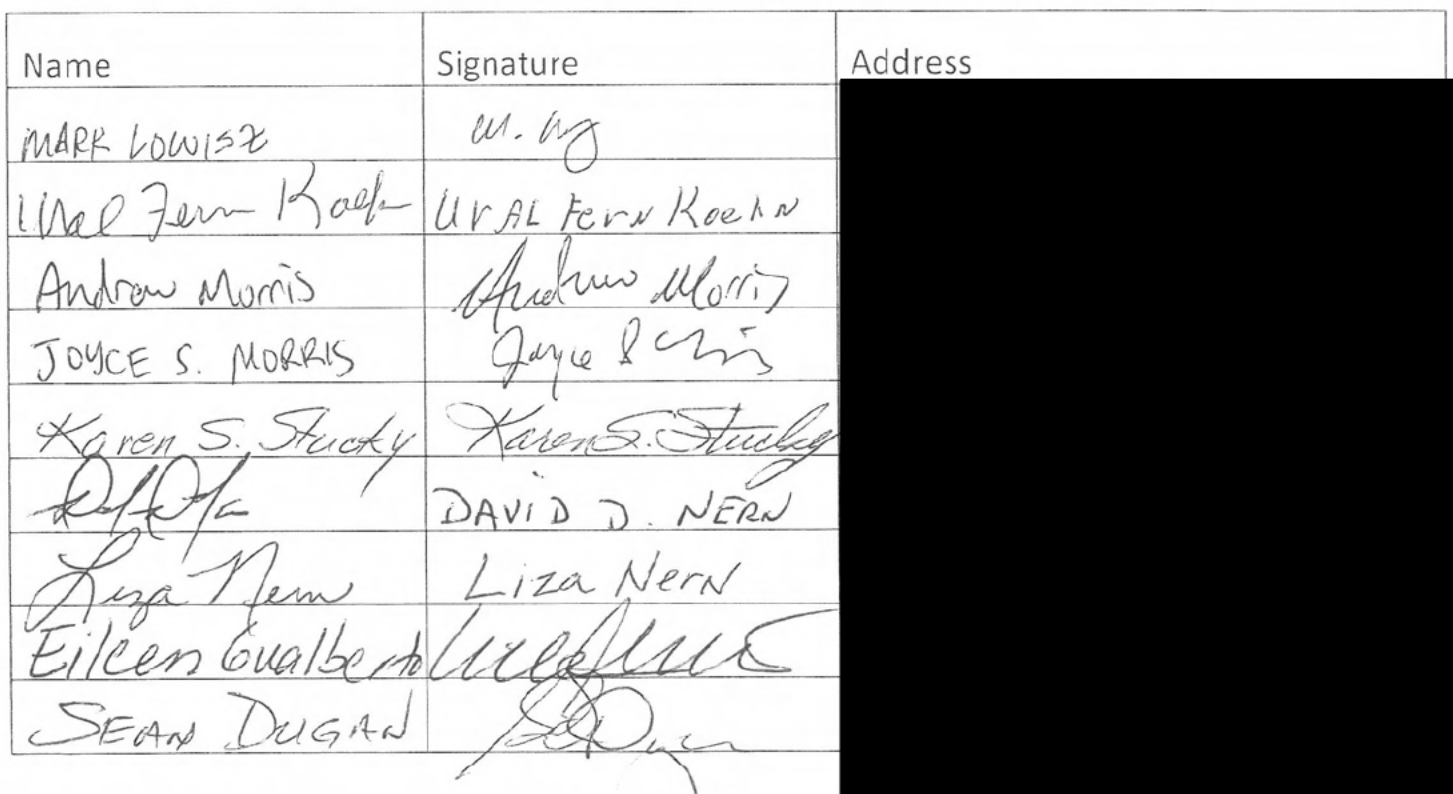 Name Signature Address
MARK LOWISZ
Uval Fern Koehn UVAL Fern Koehn
Andrew Morris Andrew Morris
JOYCE S. MORRIS Joyce S
Karen S. Stucky Karen S. Stucky
DAVID D. NERN
Liza Nern Liza Nern
Eileen Gualberto
SEAN DUGAN